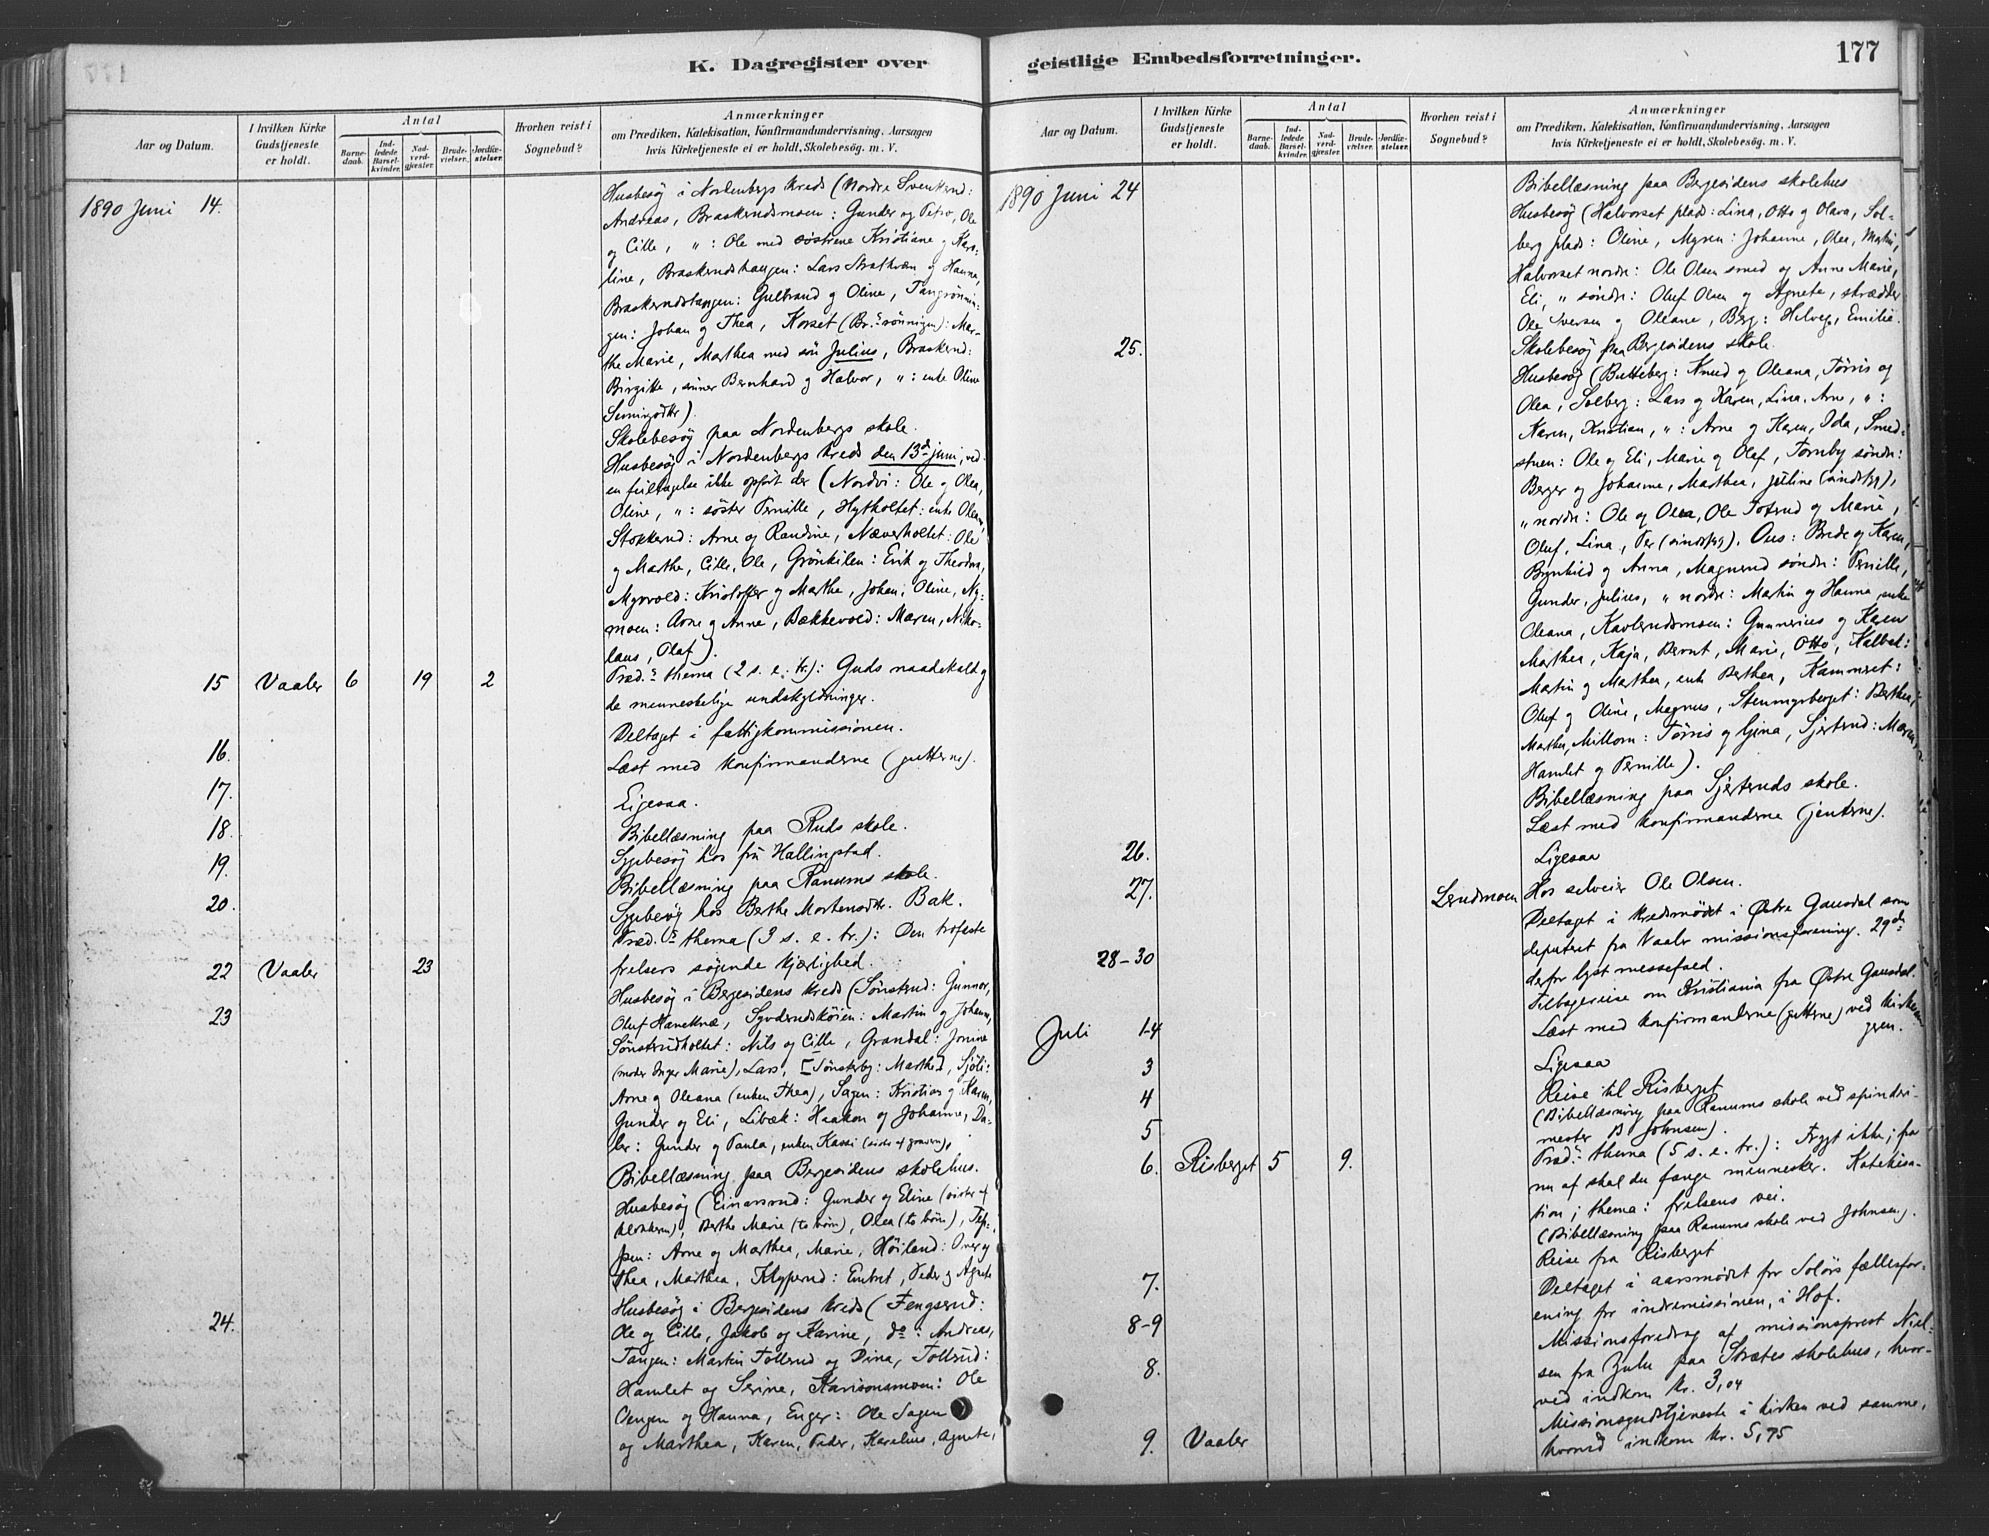 K. Dagregister over
Aar og Datum.
I hvilken Kirke Gudstjeneste er holdt.
Antal
Barnedaab.
Indledede Barselkvinder.
Nadverdgjæster.
Brudevielser.
Jordfæstelser.
Hvorhen reist i Sognebud?
Anmærkninger
om Prædiken, Katekisation, Konfirmandundervisning, Aarsagen
hvis Kirketjeneste ei er holdt, Skolebesøg. m. V.
1890 Juni 14.
Husbesøg i Nordenbergs kreds (Nordre
Andreas, Braskerudsmoen: Gunder og Petra, Ole
og Cille, „ : Ole med søstrene Kristiane og Karo-
line, Braskerudshaugen: Lars og Hanna,
Braskerudstangen: Gulbrand og Oline,
gen: Johan og Thea, Korset (Br.s rönningen): Mar-
the Marie, Marthea med sön Julius, Braskerud:
Birgitte, sönner Bernhard og Halvor, „ : enke Oline
Skolebesøg paa Nordenbergs skole.
Husbesøg i Nordenbergs kreds den 13d juni, ved
en feiltagelse ikke opfört der (Nordvi: Ole og Olea,
Oline, „ : söster Pernille, Hytholtet: enke
Stokkerud: Arne og Randine, Næverholtet: Ole
og Marthe, Cille, Ole, Grönkilen: Erik og Theodora,
Myrvold: Kristoffer og Marthe, Johan, Oline, Ny-
moen: Arne og Anne, Bækkevold: Maren, Niko-
laus, Olaf).
15 Vaaler 6 19 2
Præd.s thema (2 s. e. tr.): Guds naadekald og
de menneskelige undskyldninger.
16.
Deltaget i fattigkommissionen.
17.
Læst med konfirmanderne (gutterne).
18.
Ligesaa.
19.
Bibellæsning paa Ruds skole.
Sygebesög hos fru Hallingstad.
20.
Bibellæsning paa Ranums skole.
Sygebesög hos Berthe Mortensdtr. Bak.
22 Vaaler 23
Præd.s thema (3 s. e. tr.): Den trofaste
frelsers søgende kjærlighed.
23
Husbesøg i Bergesidens kreds (Sönsterud: Gunnor,
Oluf Haneknæ, : Martin og Johanne,
Sönsterudholtet: Nils og Cille, Grandal: Jonine
(moder Inger Marie), Lars, Sönsterby: Marthea, Sjöli:
Arne og Oleana (enken Thea), Sagen: Kristian og Karen,
Gunder og Eli, Libæk: Haakon og Johanne, Da-
ler: Gunder og Paula, enken
Bibellæsning paa Bergesidens skolehus.
Husbesøg (Einarsrud: Gunder og Eline (söster af
), Berthe Marie (to börn), Olea (to börn), Tep-
pen: Arne og Marthea, Marie, Höiland: Iver og
Thea, Marthea, Klypersrud: Embret, Peder og Agnete
24.
Husbesøg i Bergesidens kreds (Fengsrud:
Ole og Cille, Jakob og Karine, do : Andreas,
Tangen: Martin Tollsrud og Dina, Tollsrud:
Hamlet og Serine, Karisonsmoen: Ole
Oengen og Hanna, Enger: Ole Sagen
og Marthea, Karen, Peder, Karelius, Agnete,
geistlige Embedsforretninger.
177
Aar og Datum.
I hvilken Kirke Gudstjeneste er holdt.
Antal
Barnedaab.
Indledede Barselkvinder.
Nadverdgjæster.
Brudevielser.
Jordfæstelser.
Hvorhen reist i Sognebud?
Anmærkninger
om Prædiken, Katekisation, Konfirmandundervisning, Aarsagen
hvis Kirketjeneste ei er holdt, Skolebesøg. m. V.
1890 Juni 24
Bibellæsning paa Bergesidens skolehus
Husbesög (Halvorset plads: Lina, Otto og Olava, Sol-
berg plads: Oline, Myren: Johanne, Olea, Martin,
Halvorset nordre: Ole Olsen smed og Anne Marie,
Eli, „ söndre: Oluf Olsen og Agnete, skrædder
Ole Iversen og Oleane, Berg: Helvig, Emilie.
25.
Skolebesøg paa Bergesidens skole.
Husbesøg (Butteberg: Knud og Oleana, Törris og
Olea, Solberg: Lars og Karen, Lina, Arne, „ :
Karen, Kristian, „ : Arne og Karen, Ida, Smed-
stuen: Ole og Eli, Marie og Olaf, Tornby söndre:
Berger og Johanne, Marthea, Juline (sindssyg),
„ nordre: Ole og Olea, Ole Tofsrud og Marie,
Oluf, Lina, Per (sindssyg), Ous: Brede og Karen,
Brynhild og Anna, Magnerud söndre: Pernille,
Gunder, Julius, „ nordre: Martin og Hanna, enke
Oleana, Kavlerudsmoen: Gunnerius og Karen
Marthea, Kaja, Bernt, Marie, Otto,
Martin og Marthea, enke Berthea,
Oluf og Oline, Magnus, Stenmyrberget: Berthea,
Marthea, Millom: Törris og Gina, Sjertrud: Maren,
Hamlet og Pernille).
Bibellæsning paa Sjertruds skole.
26.
Læst med konfirmanderne (jenterne).
27.
Ligesaa
Lerudmoen
Hos selveier Ole Olsen.
28-30
Deltaget i kredsmödet i Östre Gausdal som
deputeret fra Vaaler missionsforening. 29de
derfor lyst messefald.
Juli 1-4
Tilbagereise om Kristiania fra Östre Gausdal.
3
Læst med konfirmanderne (gutterne) ved kirkesan-
geren.
4
Ligesaa
5
Reise til Risberget
(Bibellæsning paa Ranums skole ved spinderi-
mester B Johnsen).
6. Risberget 5 9.
Præd.s thema (5 s. e. tr.): Frygt ikke; fra
nu af skal du fange mennesker. Katekisa-
tion; thema: frelsens vei.
(Bibellæsning paa Ranums skole ved Johnsen).
7.
Reise fra Risberget
8-9
Deltaget i aarsmödet for Solörs fællesfor-
ening for indremissionen, i Hof.
8.
Missionsforedrag af missionsprest Niel-
sen fra Zulu paa Strætes skolehus, hvor-
ved indkom kr. 3,04
9. Vaaler
Missionsgudstjeneste i kirken ved samme,
hvorved indkom kr. 5,75